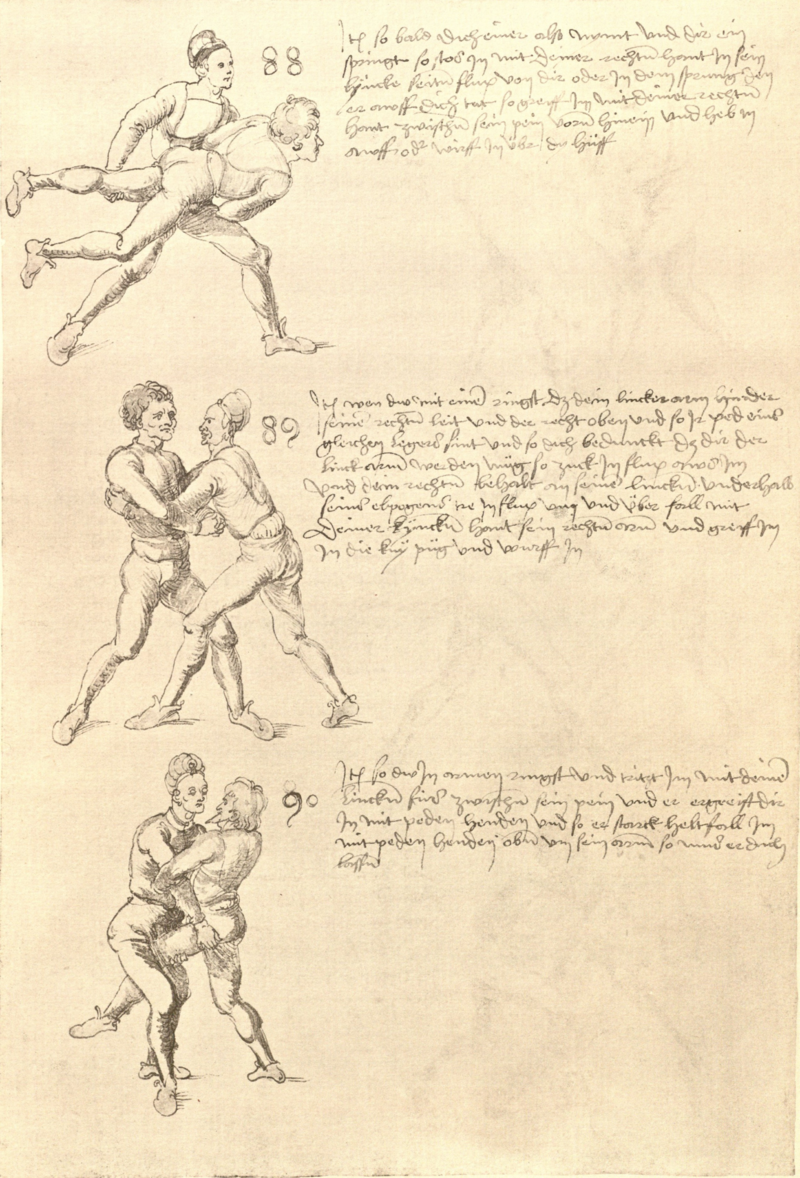 88
Itē so bald dich einer also nimt vnd dir ein
springt so stos in mit deiner rechtn̄ hant in sein
lyncke seitn̄ flux von dir oder in dem sprung den
er awff dich tut so greiff im mit deiner rechtn̄
hant zwischn̄ sein pein vorn̄ hinein vnd heb in
awff odr̄ wirff in vber dy hüff
89
Itē wen dw mit einē ringst dz dein lincker arm hinder
seinē rechtn̄ leit vnd der recht oben vnd so ir ped eins
gleichen legers sint vnd so dich bedunckt dz dir der
linck arm̄ werden müg so zuck in flux aws im
vnd dem rechtn̄ behalt an seinē linckn̄ vnderhalb
seins elpogens tre in flux vmb vnd vber fall mit
deiner lynckn̄ hant sein rechtn̄ arm̄ vnd greiff im
in die kny püg vnd würff in
90
Itē so dw in armen ringst vnd trizt im mit deinē
linckn̄ fus zwischn̄ sein pein vnd er ergreift dir
in mit peden henden vnd so er starck helt fall im
mit peden henden obn̄ vm sein arm̄ so mus er dich
lassn̄